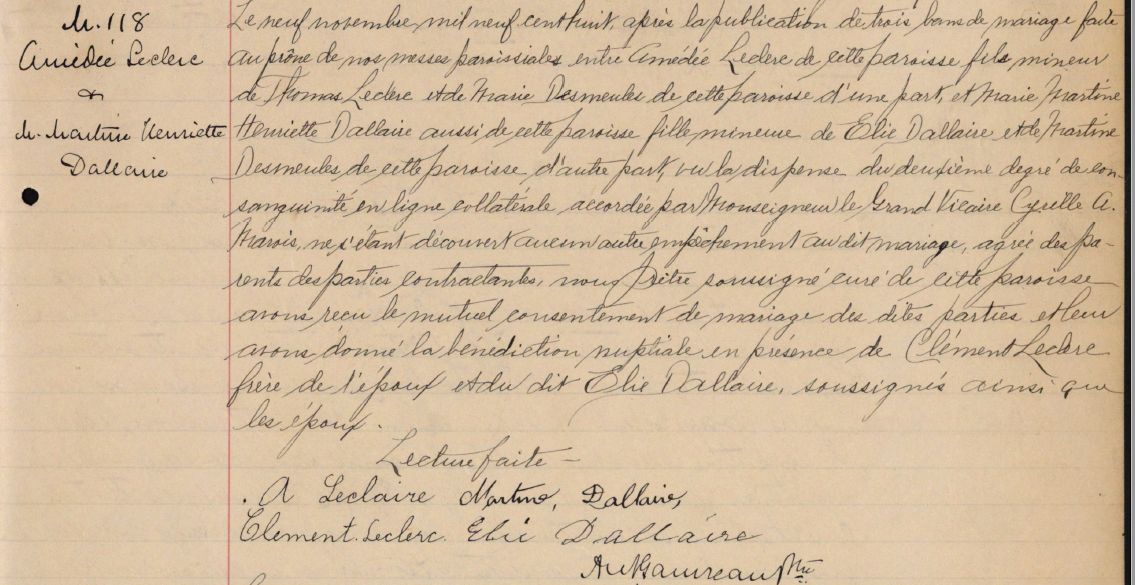 M. 118
Amédée Leclerc
&
M. Martine Henriette
Dallaire
Le neuf novembre mil neuf cent huit, après la publication de trois bans de mariage faite
au prône de nos messes paroissiales entre Amédée Leclerc de cette paroisse fils mineur
de Thomas Leclerc et de Marie Desmeules de cette paroisse d'une part, et Marie Martine
Henriette Dallaire aussi de cette paroisse fille mineure de Elie Dallaire et de Martine
Desmeules de cette paroisse d'autre part, vu la dispense du deuxième degré de con-
sanguinité en ligne collatérale accordée par Monseigneur le Grand Vicaire Cyrille A.
Marois, ne s'étant découvert aucun autre empêchement au dit mariage, agréé des pa-
rents des parties contractantes, nous prêtre soussigné curé de cette paroisse
avons reçu le mutuel consentement de mariage des dites parties et leur
avons donné la bénédiction nuptiale en présence de Clément Leclerc
frère de l'époux et du dit Elie Dallaire, soussignés ainsi que
les époux.
Lecture faite –
A Leclaire Martine, Dallaire,
Clement. Leclerc. Elie Dallaire
Ptre